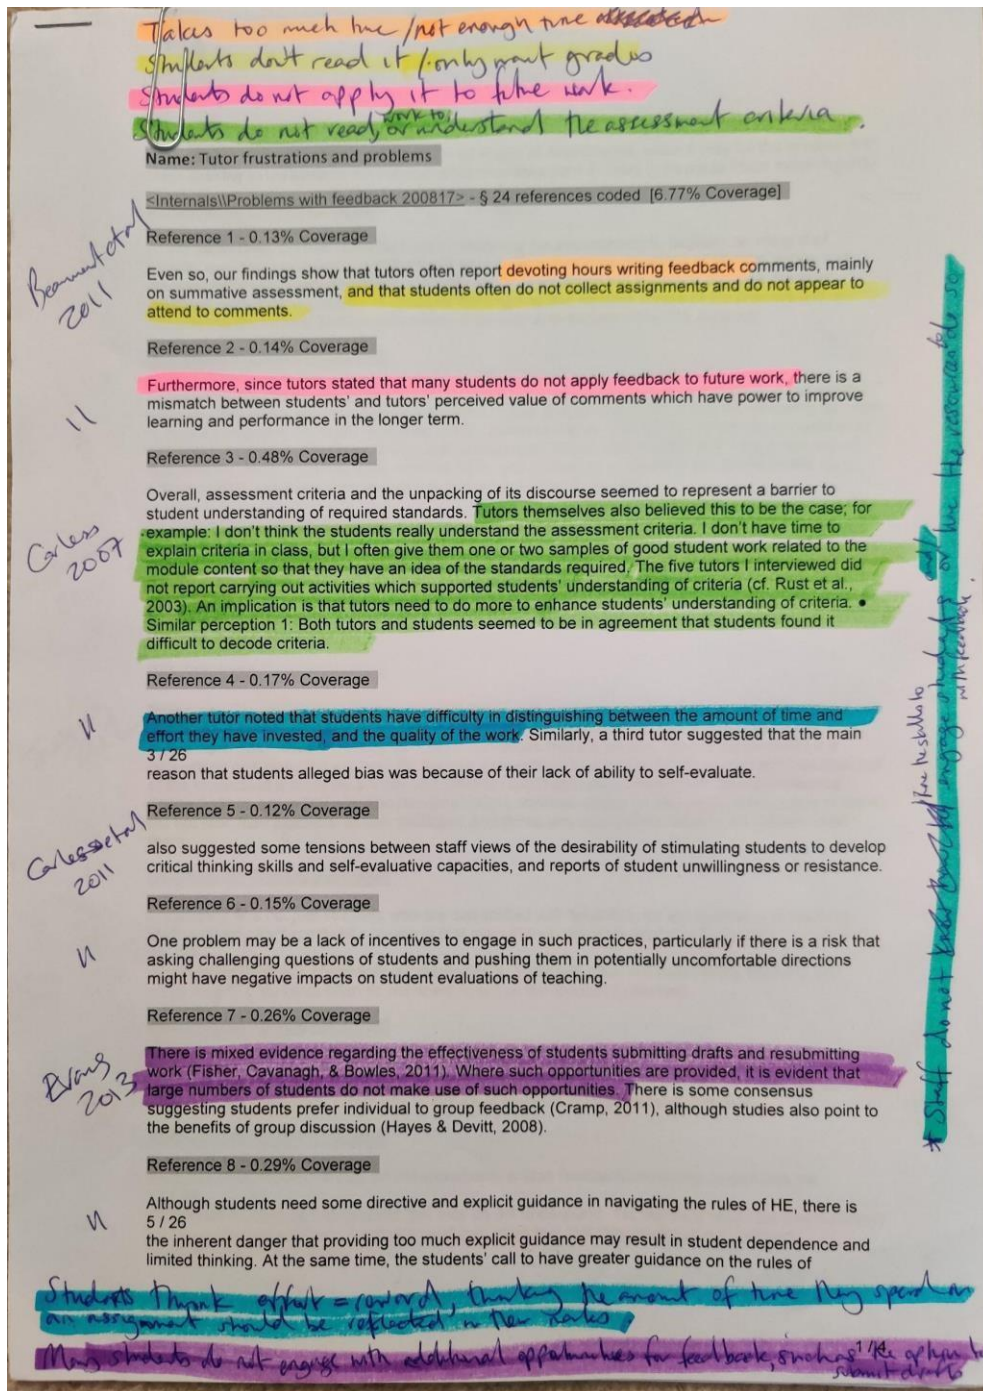 Takes too much time / not enough time
Students don't read it / only want grades
Students do not apply it to future work.
work to
Students do not read, or understand the assessment criteria.
Name: Tutor frustrations and problems
<Internals\\Problems with feedback 200817> - § 24 references coded [6.77% Coverage]
Reference 1 - 0.13% Coverage
Beaumont et al
2011
Even so, our findings show that tutors often report devoting hours writing feedback comments, mainly
on summative assessment, and that students often do not collect assignments and do not appear to
attend to comments.
Reference 2 - 0.14% Coverage
"
Furthermore, since tutors stated that many students do not apply feedback to future work, there is a
mismatch between students' and tutors' perceived value of comments which have power to improve
learning and performance in the longer term.
Reference 3 - 0.48% Coverage
Carless
2007
Overall, assessment criteria and the unpacking of its discourse seemed to represent a barrier to
student understanding of required standards. Tutors themselves also believed this to be the case; for
example: I don't think the students really understand the assessment criteria. I don't have time to
explain criteria in class, but I often give them one or two samples of good student work related to the
module content so that they have an idea of the standards required. The five tutors I interviewed did
not report carrying out activities which supported students' understanding of criteria (cf. Rust et al.,
2003). An implication is that tutors need to do more to enhance students' understanding of criteria. •
Similar perception 1: Both tutors and students seemed to be in agreement that students found it
difficult to decode criteria.
Reference 4 - 0.17% Coverage
"
Another tutor noted that students have difficulty in distinguishing between the amount of time and
effort they have invested, and the quality of the work. Similarly, a third tutor suggested that the main
3 / 26
reason that students alleged bias was because of their lack of ability to self-evaluate.
Reference 5 - 0.12% Coverage
Carless et al
2011
also suggested some tensions between staff views of the desirability of stimulating students to develop
critical thinking skills and self-evaluative capacities, and reports of student unwillingness or resistance.
Reference 6 - 0.15% Coverage
"
One problem may be a lack of incentives to engage in such practices, particularly if there is a risk that
asking challenging questions of students and pushing them in potentially uncomfortable directions
might have negative impacts on student evaluations of teaching.
Reference 7 - 0.26% Coverage
Evans
2013
There is mixed evidence regarding the effectiveness of students submitting drafts and resubmitting
work (Fisher, Cavanagh, & Bowles, 2011). Where such opportunities are provided, it is evident that
large numbers of students do not make use of such opportunities. There is some consensus
suggesting students prefer individual to group feedback (Cramp, 2011), although studies also point to
the benefits of group discussion (Hayes & Devitt, 2008).
Reference 8 - 0.29% Coverage
"
Although students need some directive and explicit guidance in navigating the rules of HE, there is
5 / 26
the inherent danger that providing too much explicit guidance may result in student dependence and
limited thinking. At the same time, the students' call to have greater guidance on the rules of
Students think effort = reward, thinking the amount of time they spend on
an assignment should be reflected in their marks
Many students do not engage with additional opportunities for feedback, such as the option to
submit drafts
* Staff do not have the skills to engage students or the resources to do so
with feedback.